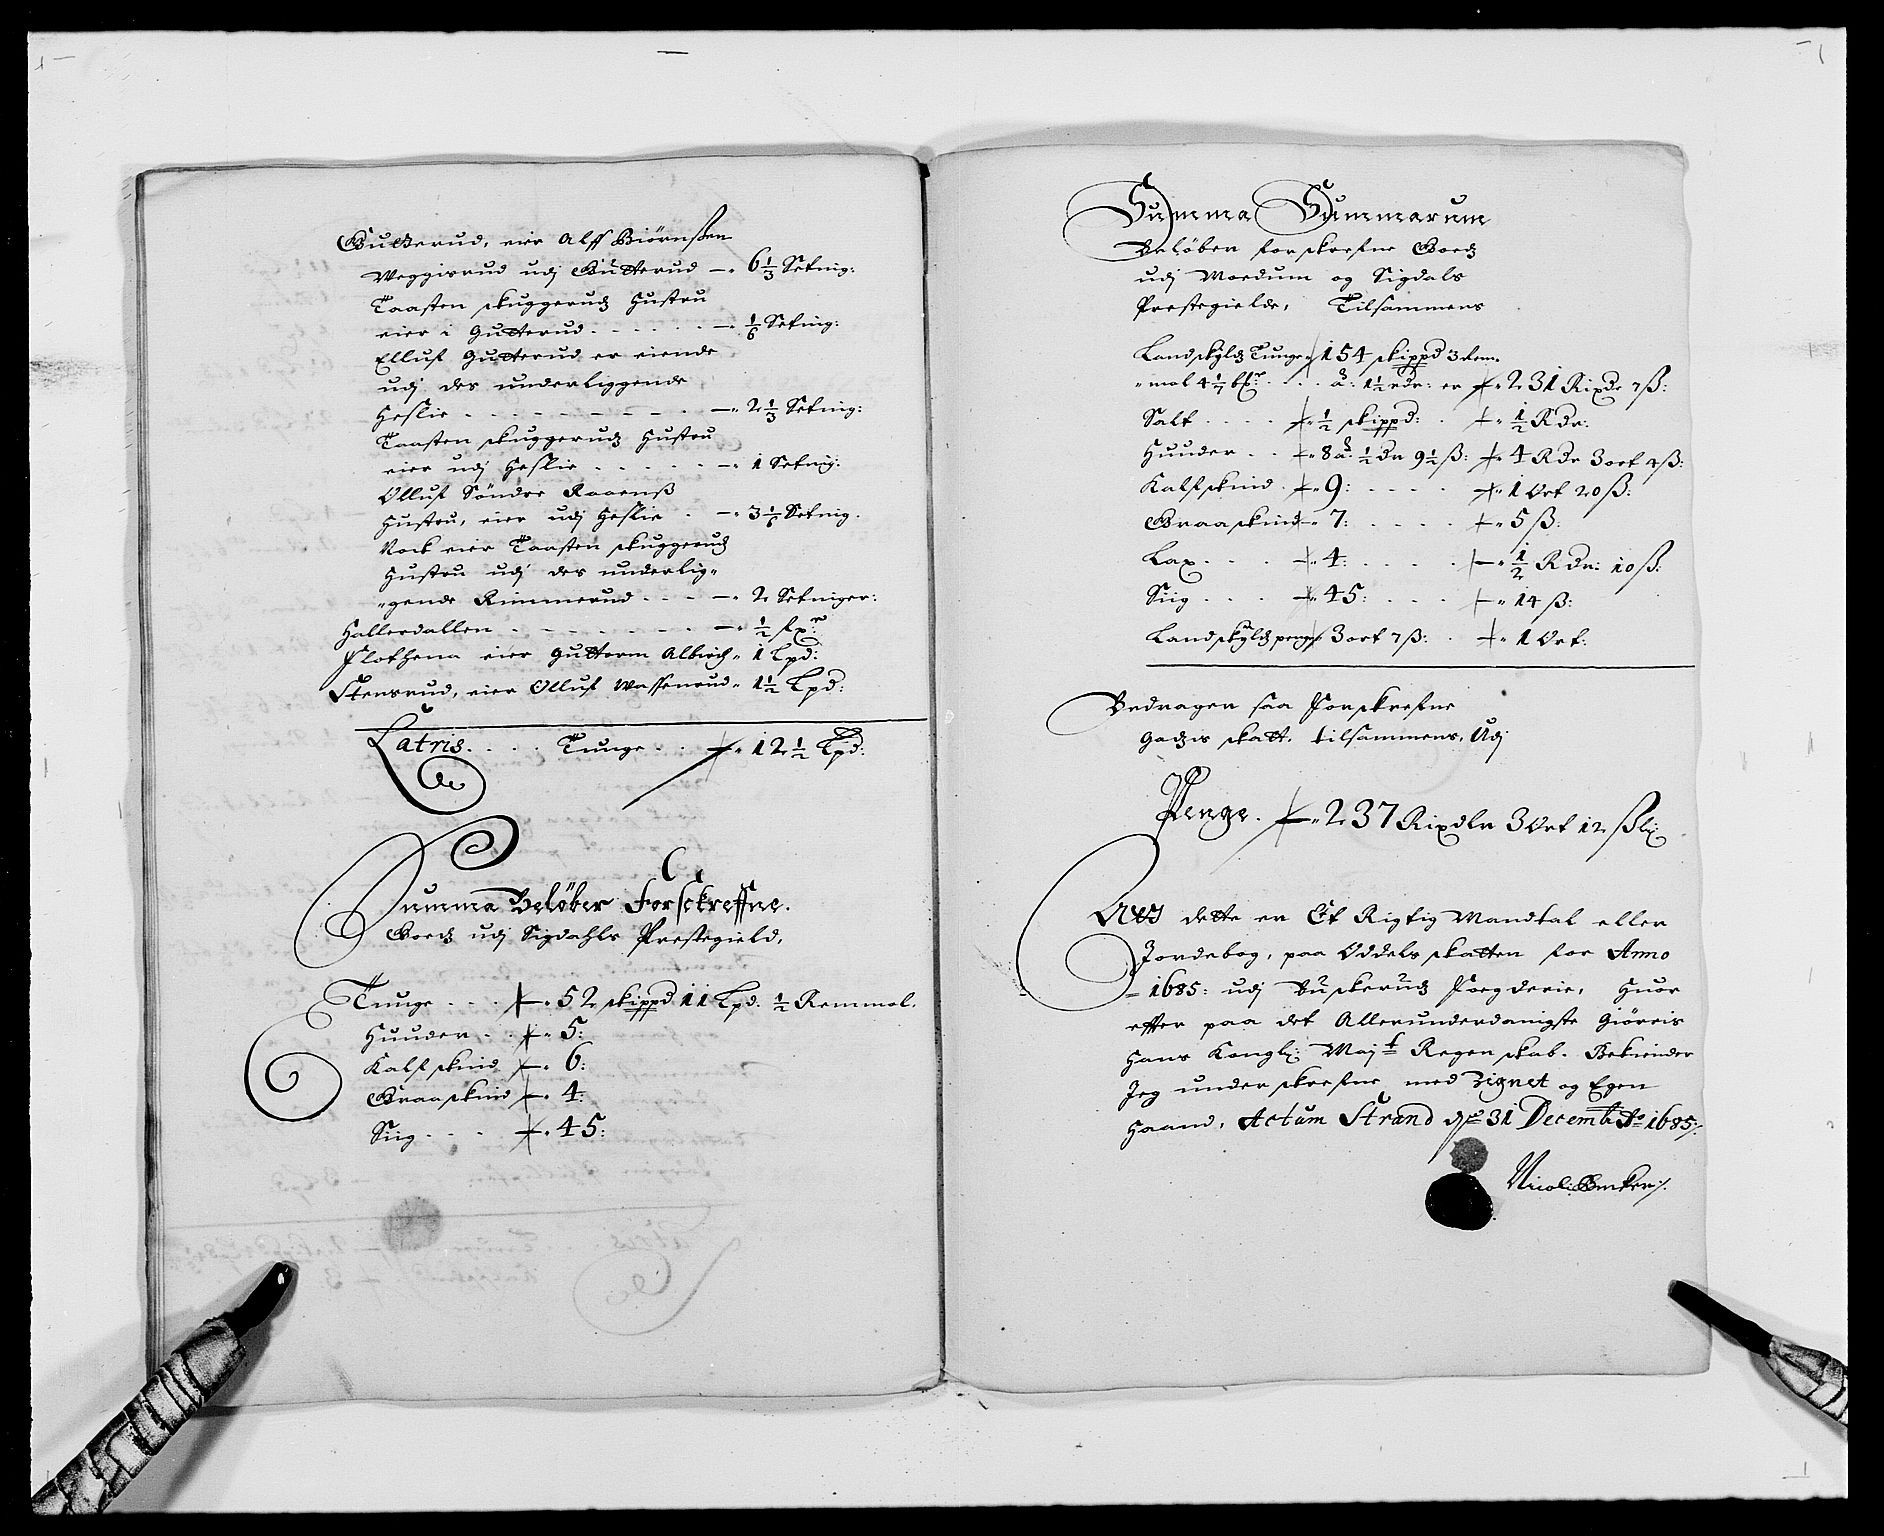 Gutterud, eier Alff Biörnßen
Weggisrud udj Gutterud — 6 1/3 Setnig:
Taasten skuggeruds Hustru
eier i Gutterud . . . . . — 1/6 Setnig:
Elluf Gutterud er eiende
udj des underliggende
Heslie - - - - - - - — 2 1/3 Setnig:
Taasten skuggeruds Hustru
eier udj Heslie . . . . . — 1 Setnig:
Olluf Söndre Raaenß
Hustru, eier udj Heslie . — 3 1/6 Setnig.
Nock eier Taasten skuggeruds
Hustru udj des underlig„
„gende Rimmerud . . . — 2 Setniger:
Hallesdallen . . . . . . — 1/2
Plothena eier Guttorm Albich„ 1 Lpd:
Stensrud, eier Olluf Wassenrud„ 1 1/2 Lpd:
Latris. . . . Tunge . . 12 1/2 Lpd:
Summa Beløber Forsckreffne.
Goeds udj Sigdahls Prestegield,
Tunge . . . 52 skippd 11 Lpd. 1/2 Remmol.
Huuder . . 5:
Kalfskind 6:
Graaskind 4:
Siig . . . 45:
Summa Summarum
Beløber forskrefne Goeds
udj Moedum og Sigdals
Prestegielde, Tilsammens
Landskylds Tunge 154 skippd 3 Rem„
„mol 4 1/7 . . . â: 1 1/2 rdr: er 231 Rixdr 7 ß:
Salt . . . . 1/2 skippd: . 1/2 Rdr:
Huuder . . 8 â: 1/2 dr 9 1/2 ß: 4 Rdr 3 ort 4 ß:
Kalfskind . 9: . . . . 1 Ort 20 ß:
Graaskind 7: . . . . 5 ß:
Lax . . . 4: . . . . 1/2 Rdr: 10 ß:
Siig . . . 45: . . . 14 ß:
Landskylds peng 3 ort 7 ß: . 1 Ort:
Bedragen saa Forskrefne
Godzis skatt, tilsammens, Udj
Penge. 237 Rixdlr 3 Ort 12 ßl:
At dette er Et Rigtig Mandtal eller
Jordebog, paa Oddels skatten for Anno
1685: udj Buskeruds Foegderie, Huor
effter paa det Allerunderdanigste Giöreis
Hans Kongl: Maj:t Regenskab. Bekiender
Jeg underskrefne med Zignet og Egen
Haand, Actum Strand d: 31 Decemb: Ao 1685/.
Nicol: